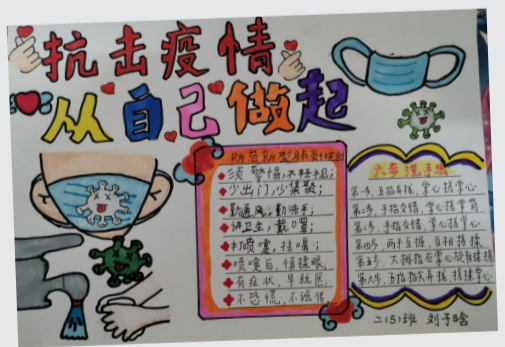 抗击疫情
从自己做起
防范新型肺炎
须警惕,不轻视;
少出门,少集聚;
勤通风;勤洗手;
讲卫生;戴口罩;
打喷嚏,捂口鼻;
喷嚏后,慎揉眼,
有症状,早就医,
不恐慌,不谣传,
六步洗手法
第一步,五指并拢,掌心搓掌心
第二步,手指交错,掌心搓掌背
第三步,手指交错,掌心搓掌心
第四步,两手互握,互相搓揉
第五步,大拇指在掌心旋转搓揉
第六步,五指指尖并拢,搓揉掌心
二(5)班 刘子晗